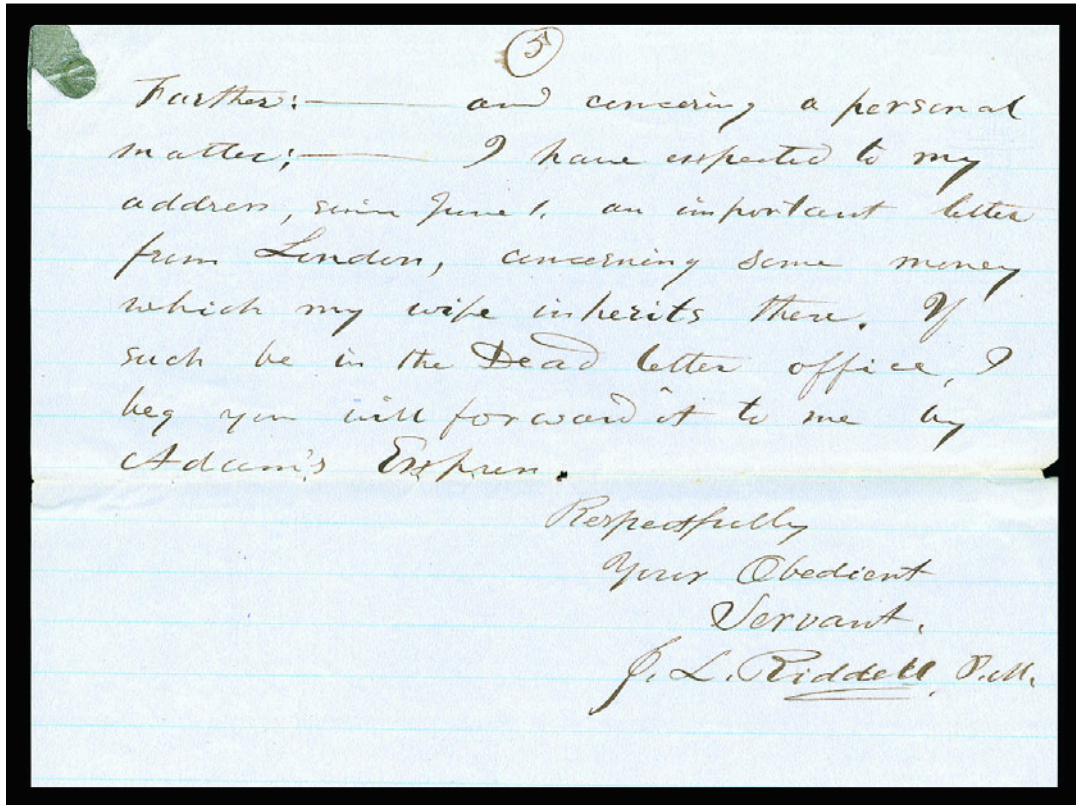 5
Farther:— and concering a personal
matter;— I have expected to my
address, since June 1. an important letter
from London, concerning some money
which my wife inherits there. If
such be in the Dead letter office, I
beg you will forward it to me by
Adam's Express.
Respectfully
Your Obedient
Servant.
J. L. Riddell, P.M.